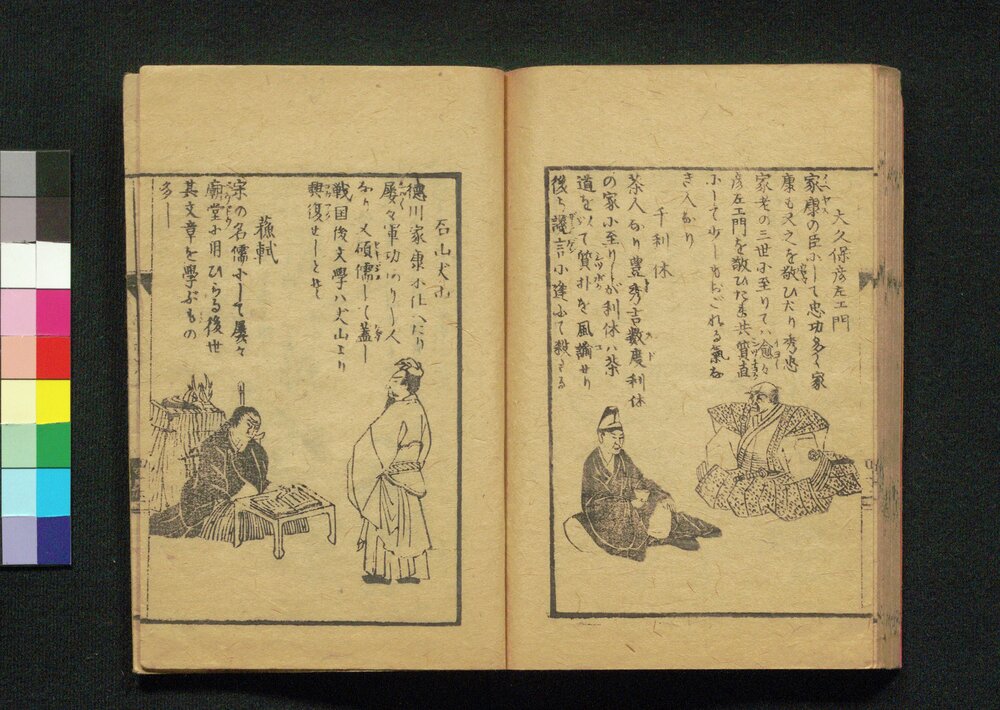 大久保彦左エ門
家康の臣小して忠功多く家
康も又之を敬ひたり秀忠
家光の三世小至りてハ愈々
彦左エ門を敬ひたり其質直
小して少しもおごれる氣な
き人なり
千利休
茶人なり豊秀吉数度利休
の家小至りしが利休ハ茶
道を以て質朴を風諭せり
後ち讒言小逢ふて殺さる
石山犬山
徳川家康小仕へたり
屡々軍功ありし人
なり又碩儒して蓋し
戦国後文學ハ犬山より
興復せしとぞ
蘓軾
宋の名儒小して屡々
廟堂小用ひらる後世
其文章を學ぶもの
多し